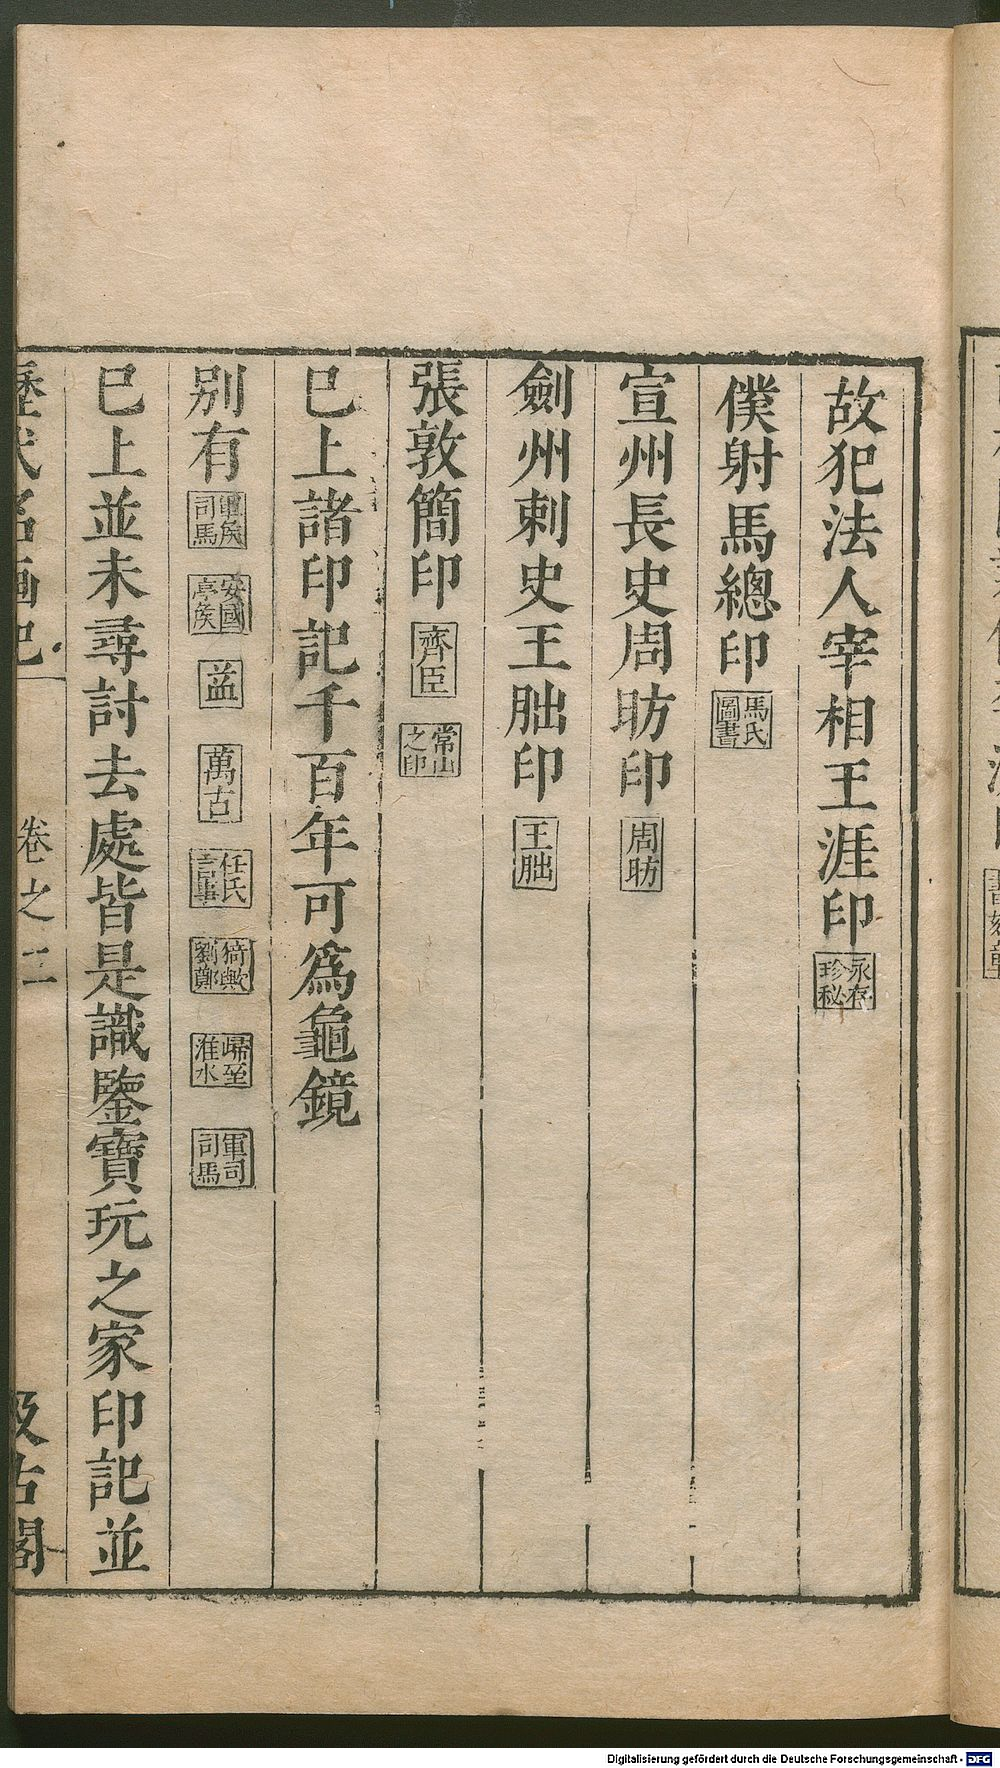 故犯法人宰相王涯印 永存珍秘
僕射馬總印 馬氏圖書
宣州長史周昉印 周昉
劍州刺史王朏印 王朏
張敦簡印 齊臣 常山之印
已上諸印記千百年可爲龜鏡
別有 司馬 安國亭侯 益 萬古 任氏言事 猗歟劉鄭 歸至淮水 軍司司馬
已上並未尋討去處皆是識鑒寶玩之家印記並
歷代名画记 卷之三 汲古閣
Digitalisierung gefördert durch die Deutsche Forschungsgemeinschaft - DFG